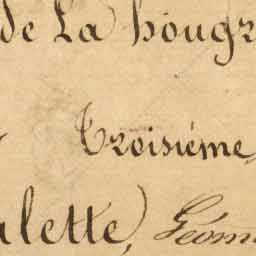 de La hougr
Troisiéme
lette, Géom